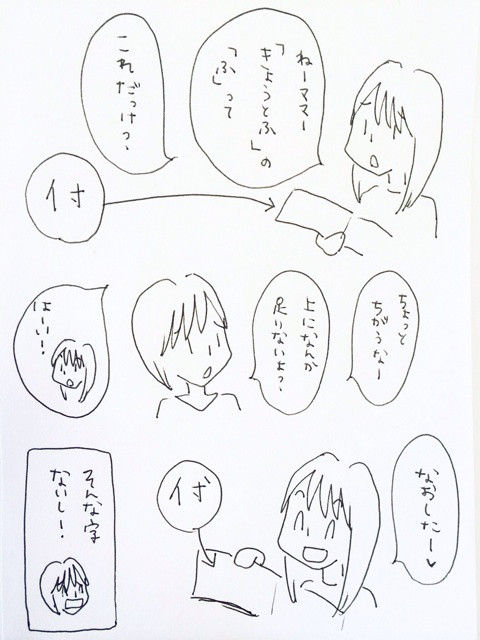 ねーママー
「きょうとふ」の
「ふ」って
これだっけっ?
付
ちょっと
ちがうなー
上になんか
足りないよ?
はーい!
なおしたー♥
そんな字
ないし!